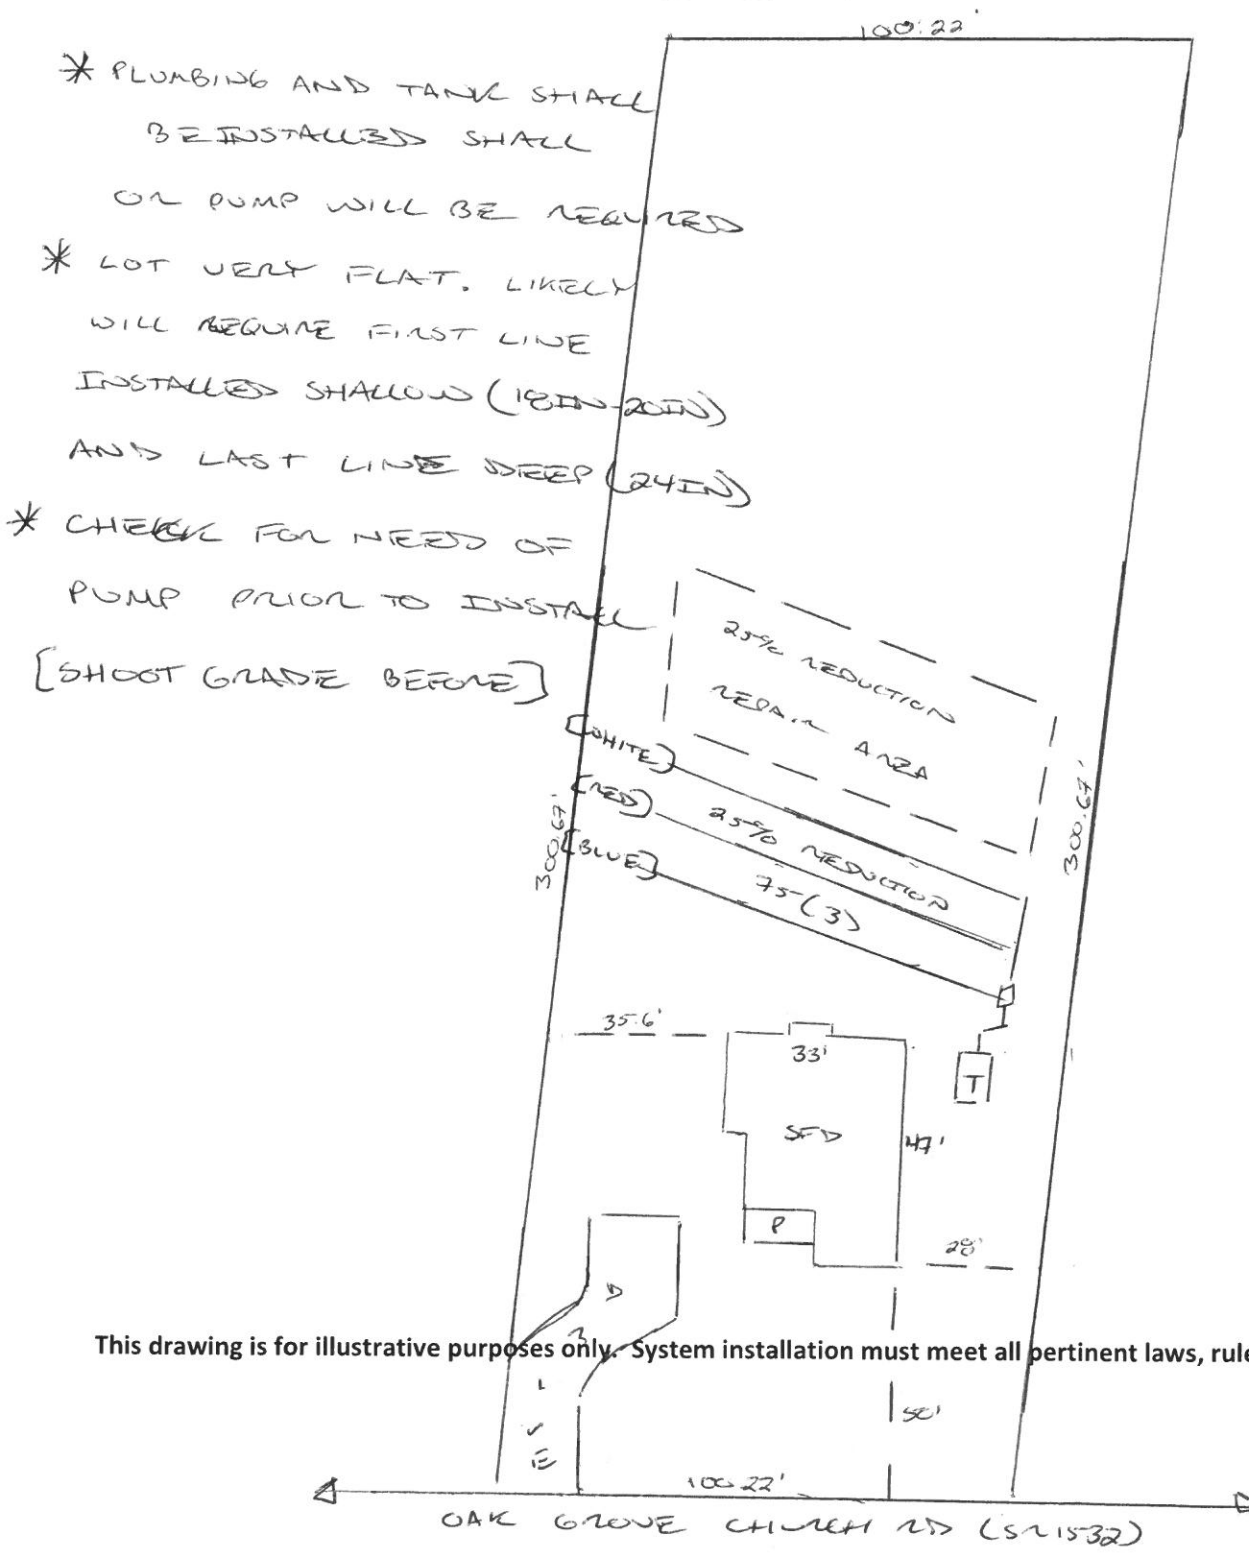 100.22'
* PLUMBING AND TANK SHALL
BE INSTALLED SHALL
OR PUMP WILL BE REQUIRED
* LOT VERY FLAT. LIKELY
WILL REQUIRE FIRST LINE
INSTALLED SHALLOW (18IN-20IN)
AND LAST LINE DEEP (24IN)
* CHECK FOR NEED OF
PUMP PRIOR TO INSTALL
[SHOOT GRADE BEFORE]
25% REDUCTION
REPAIR AREA
[WHITE]
[RED]
[BLUE]
25% REDUCTION
75(3)
300.67'
300.67'
35.6'
33'
T
SFD
47'
P
28'
DRIVE
This drawing is for illustrative purposes only. System installation must meet all pertinent laws, rule
50'
100.22'
OAK GROVE CHURCH RD (SR1532)